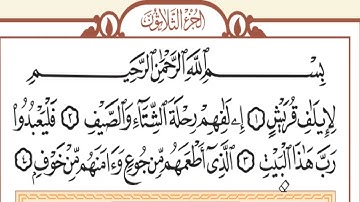 الجزء الثلاثون
بِسْمِ اللَّهِ الرَّحْمَٰنِ الرَّحِيمِ
لِإِيلَٰفِ قُرَيْشٍ ١ إِۦلَٰفِهِمْ رِحْلَةَ الشِّتَآءِ وَالصَّيْفِ ٢ فَلْيَعْبُدُوا۟
رَبَّ هَٰذَا الْبَيْتِ ٣ الَّذِىٓ أَطْعَمَهُم مِّن جُوعٍ وَءَامَنَهُم مِّنْ خَوْفٍۭ ٤